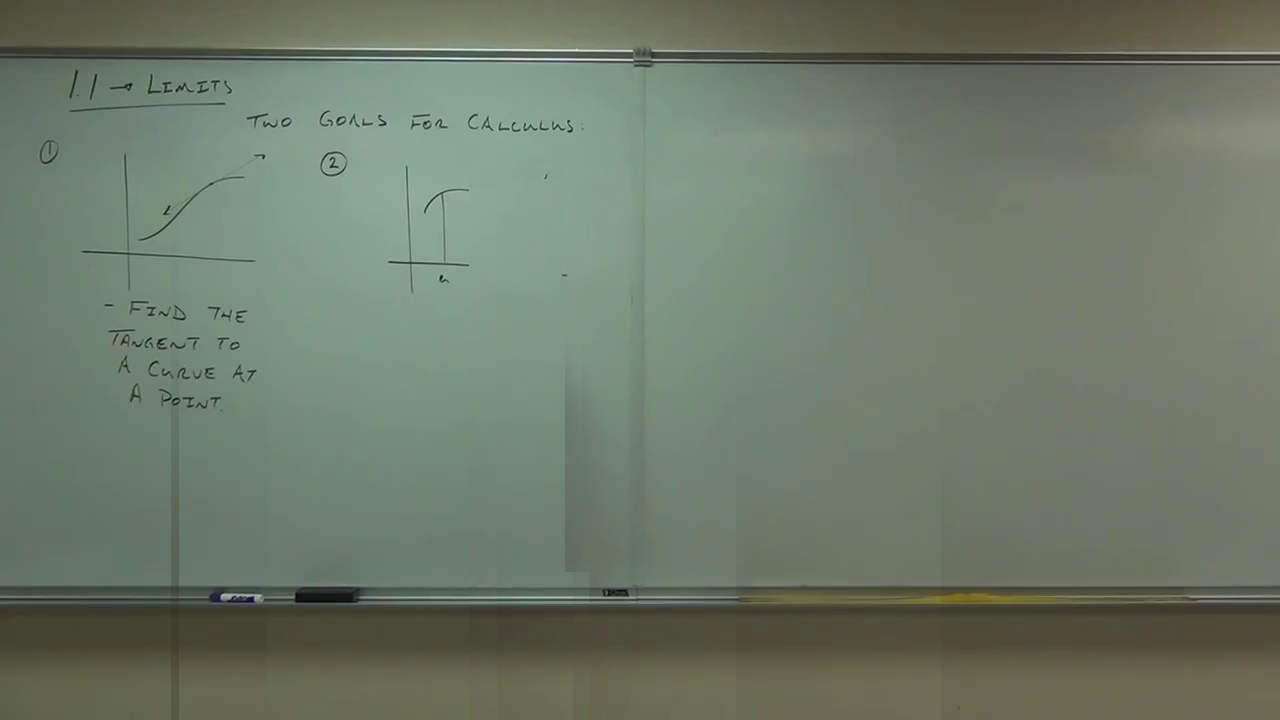 1.1 → LIMITS
TWO GOALS FOR CALCULUS:
①
②
a
- FIND THE
TANGENT TO
A CURVE AT
A POINT.
EXPO